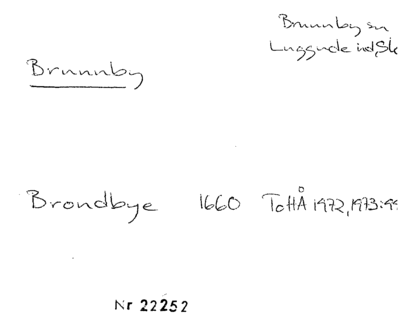 Brunnby sn
Luggude hd, Sk
Brunnby
Brondbye 1660 ToHÅ 1972, 1973:
Nr 22252